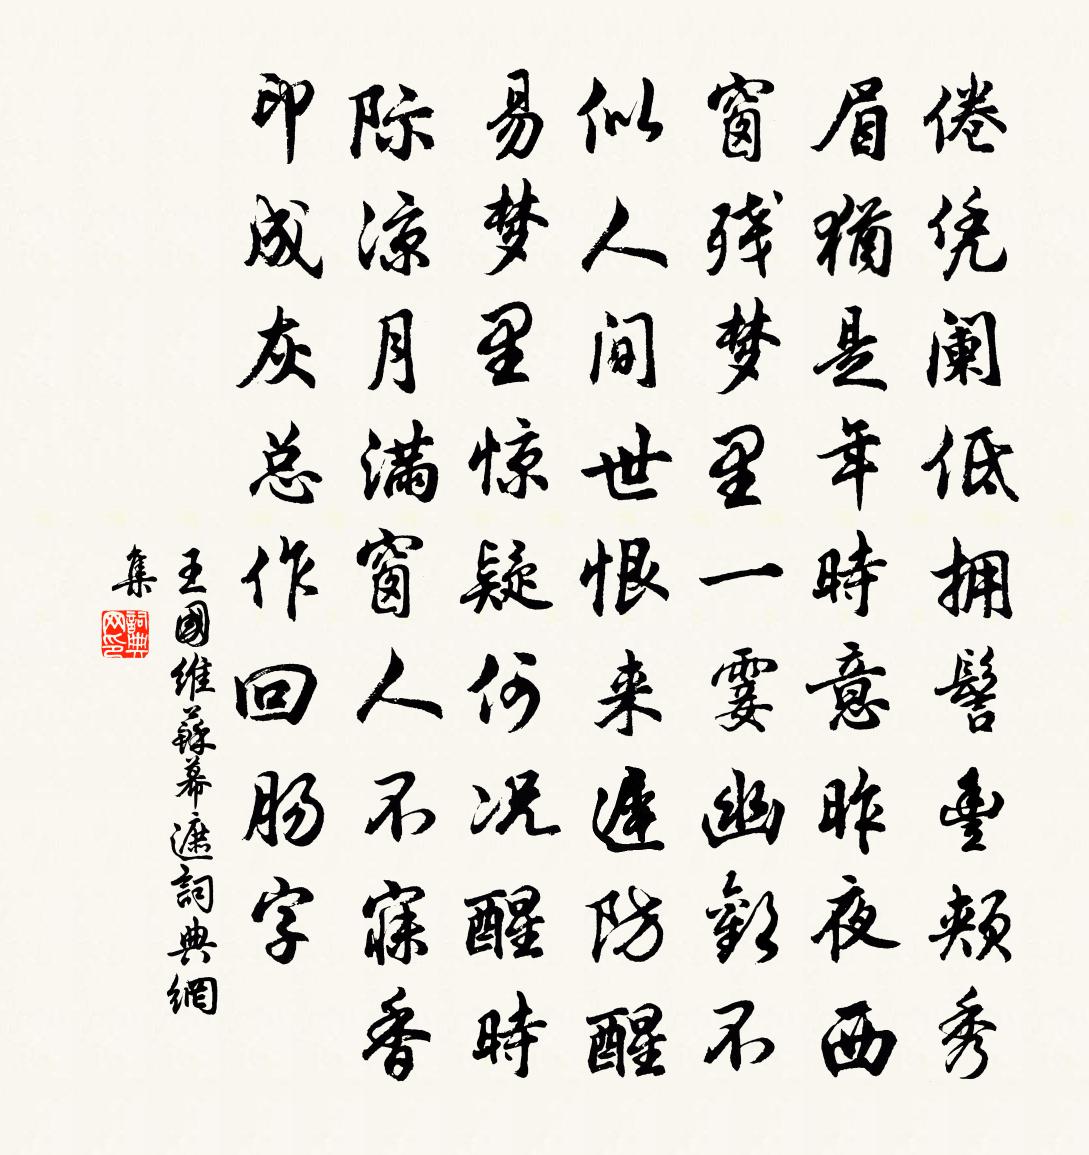 倦凭阑低拥髻丰颊秀
眉犹是年時意昨夜西
窗残梦里一霎幽欢不
似人间世恨来遲防醒
易梦里惊疑何况醒時
际凉月满窗人不寐香
印成灰总作回肠字
王國維蘇幕遮詞典網
集
詞典网印